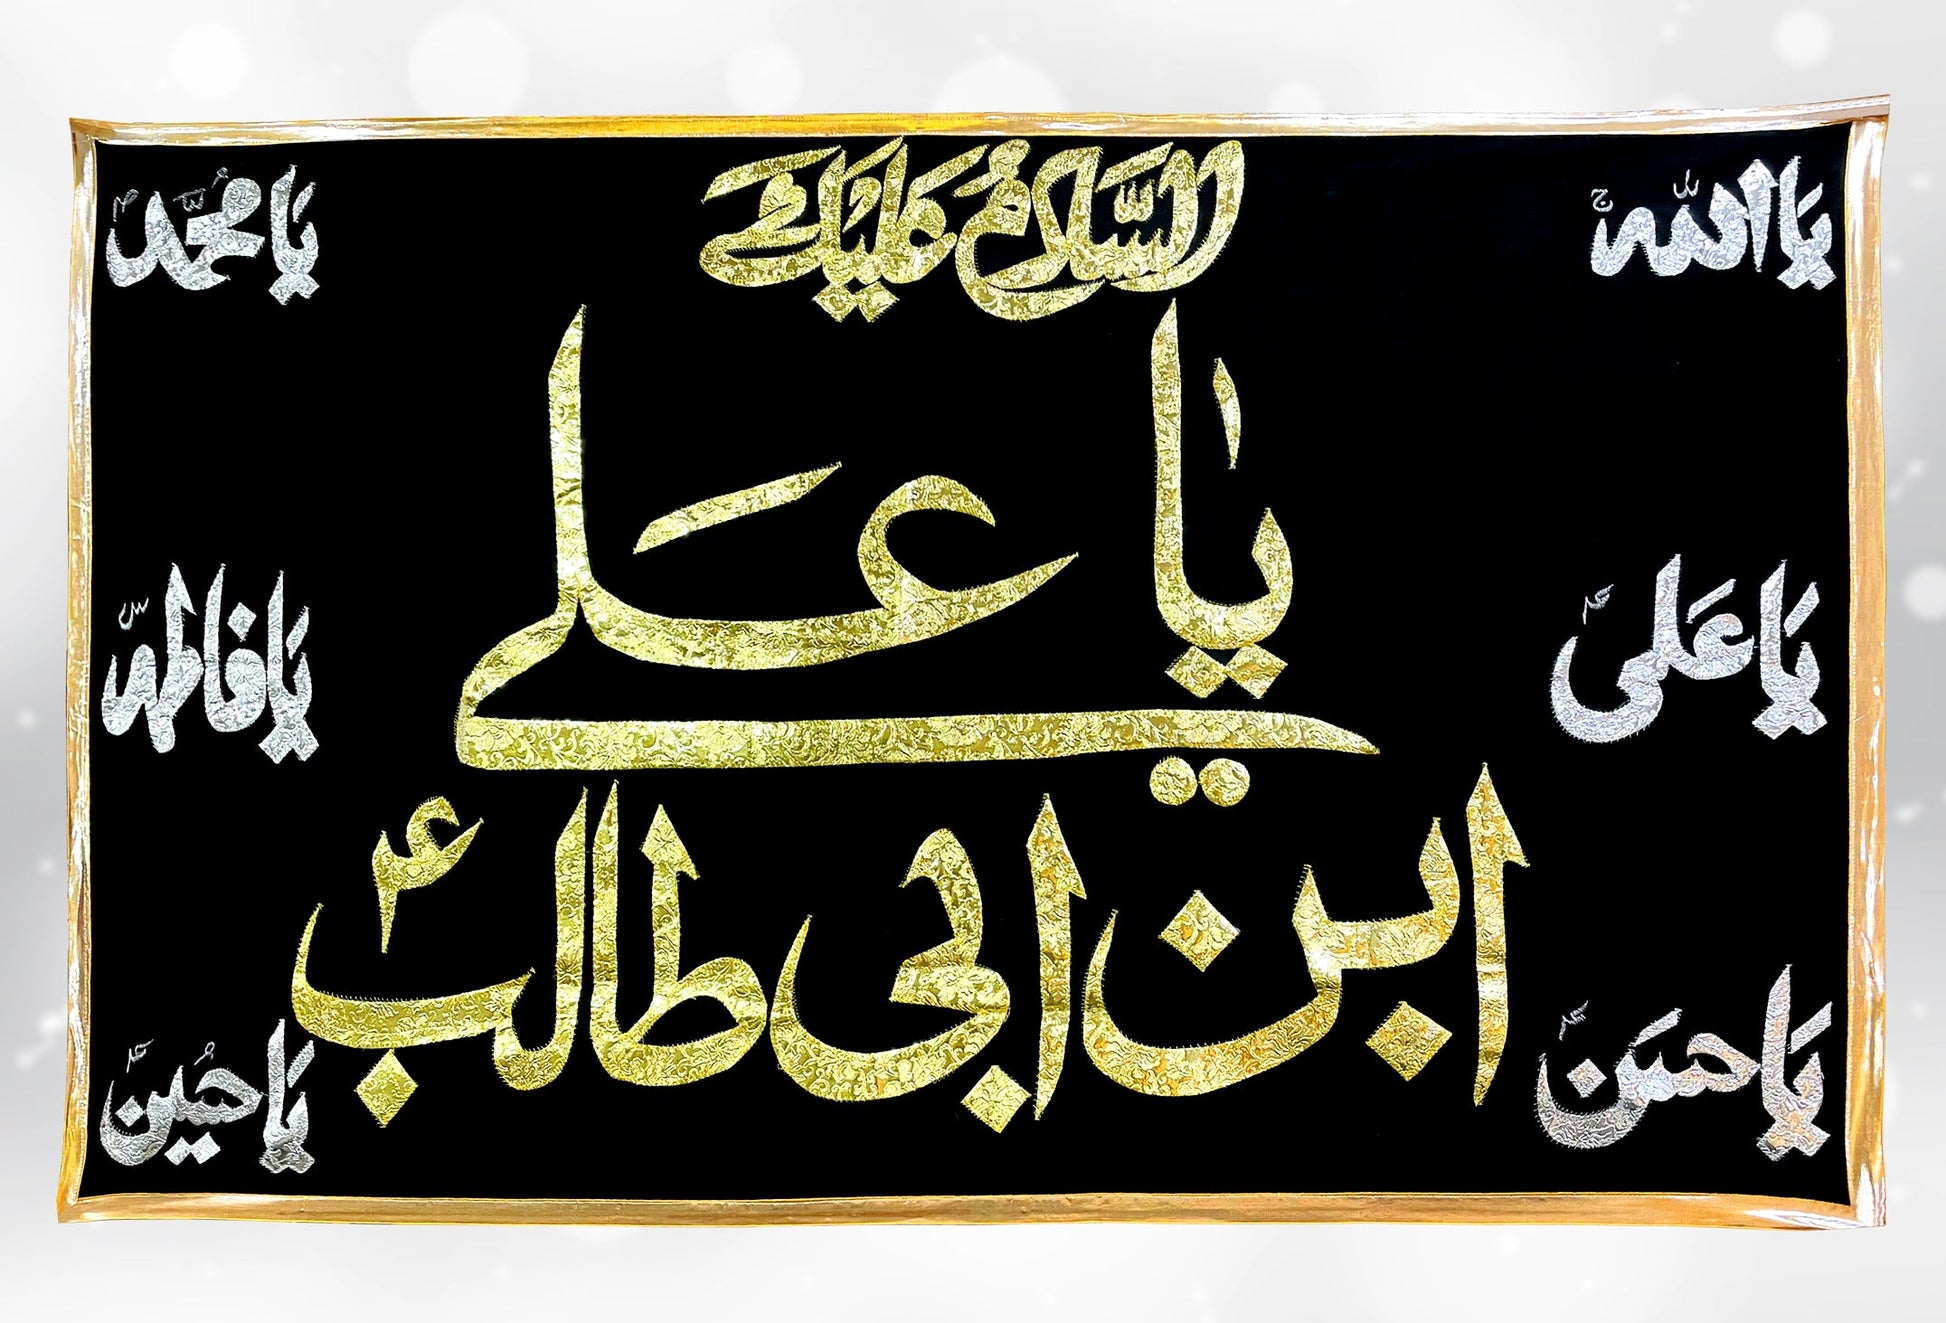 یا اللہ ج
السلام علیک
یا محمد ص
یا علی
یا فاطمہ س
یا علی ع
ابن ابی طالب ع
یا حسین ع
یا حسن ع